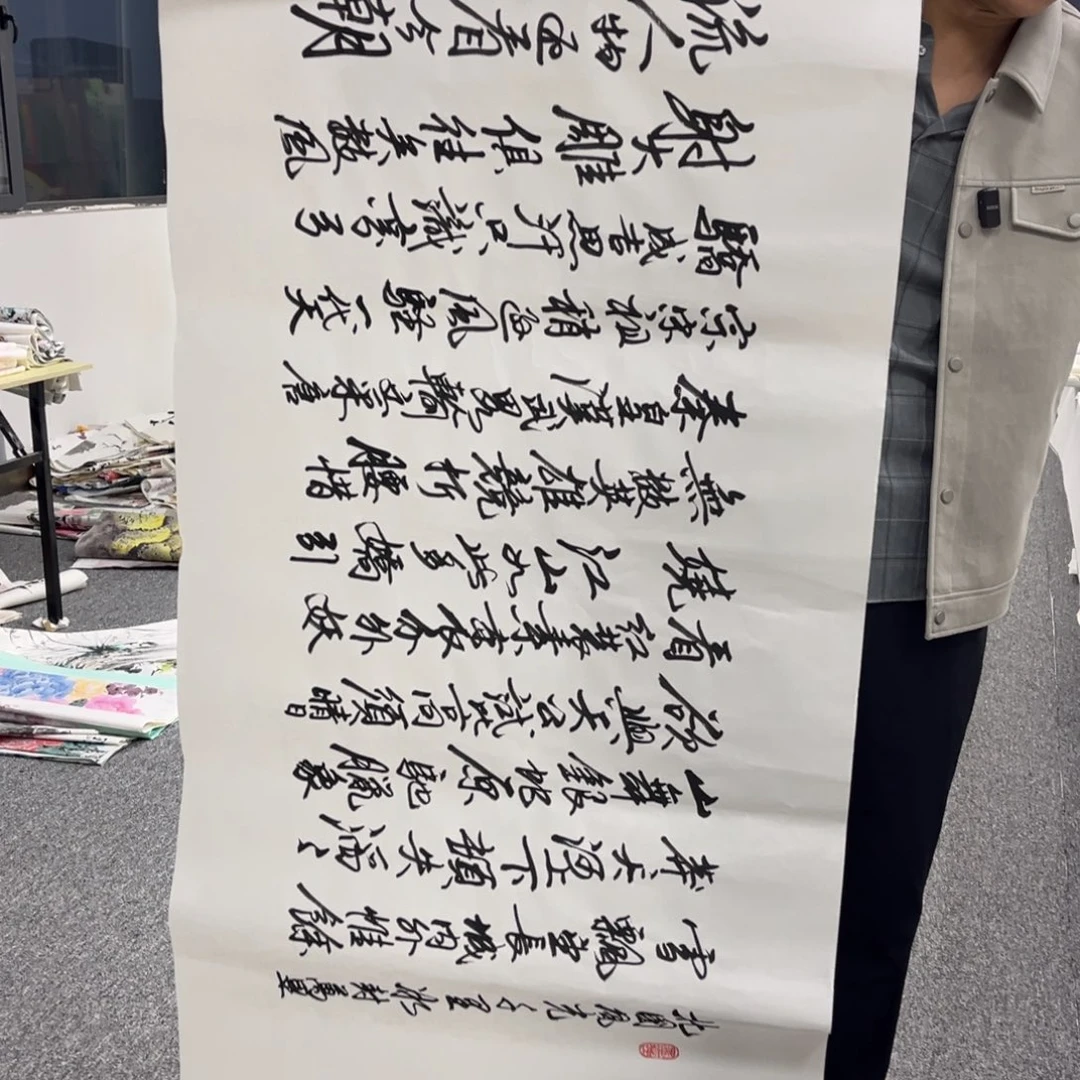 北國風光千里冰封萬里
雪飄望長城內外惟餘
莽〻大河上下頓失滔〻
山舞銀蛇原馳臘象
欲與天公試比高須晴日
看紅裝素裹分外妖
嬈江山如此多嬌引
無數英雄競折腰惜
秦皇漢武略輸文采唐
宗宋祖稍遜風騷一代天
驕成吉思汗只識彎弓
射大雕俱往矣數風
流人物還看今朝